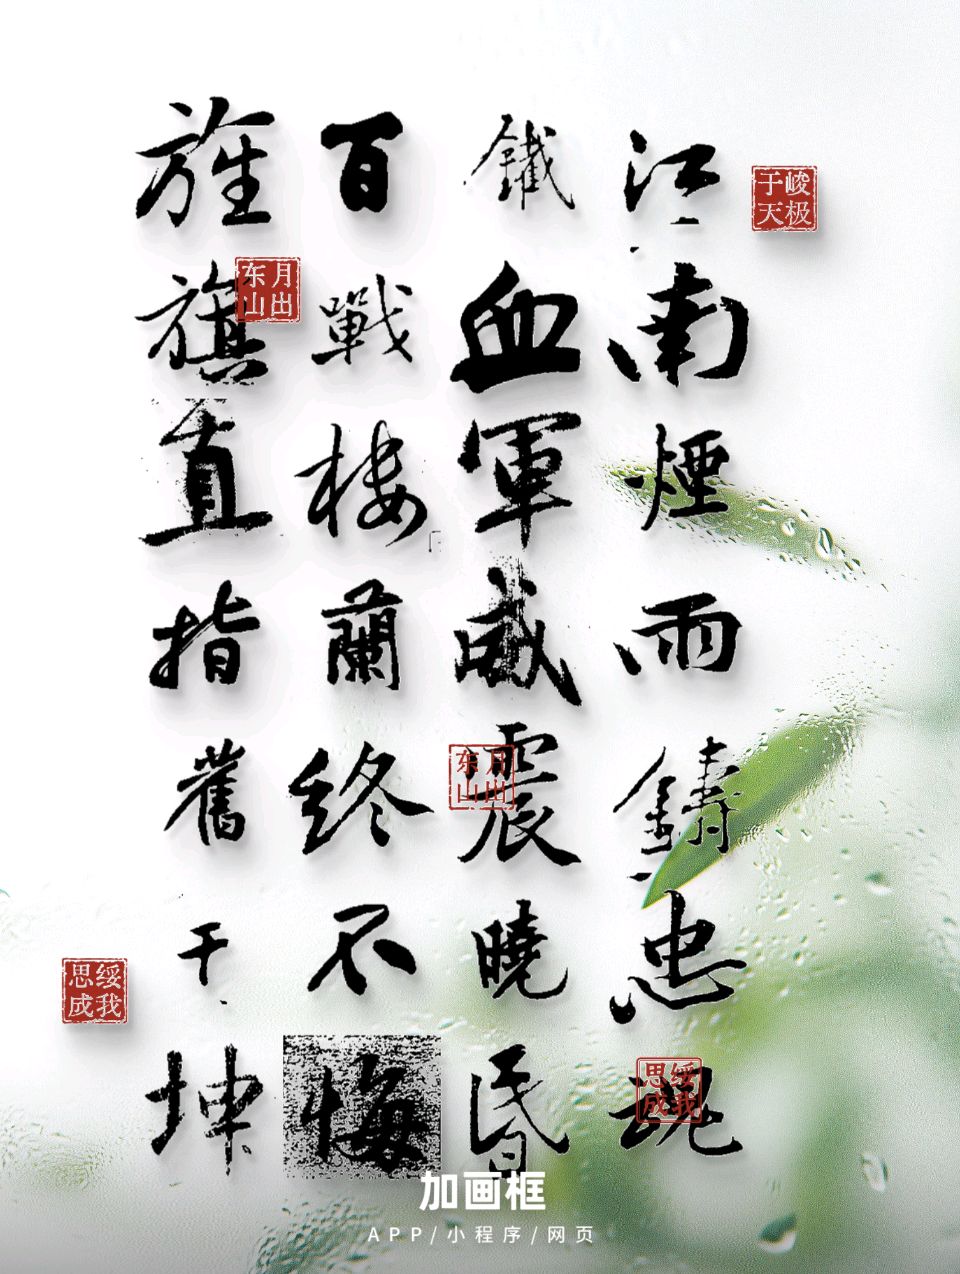 江南煙雨鑄忠魂
鐵血軍威震曉昏
百戰樓蘭終不悔
旌旗直指舊干坤
峻极于天
月出东山
月出东山
绥我思成
绥我思成
加画框
APP/小程序/网页